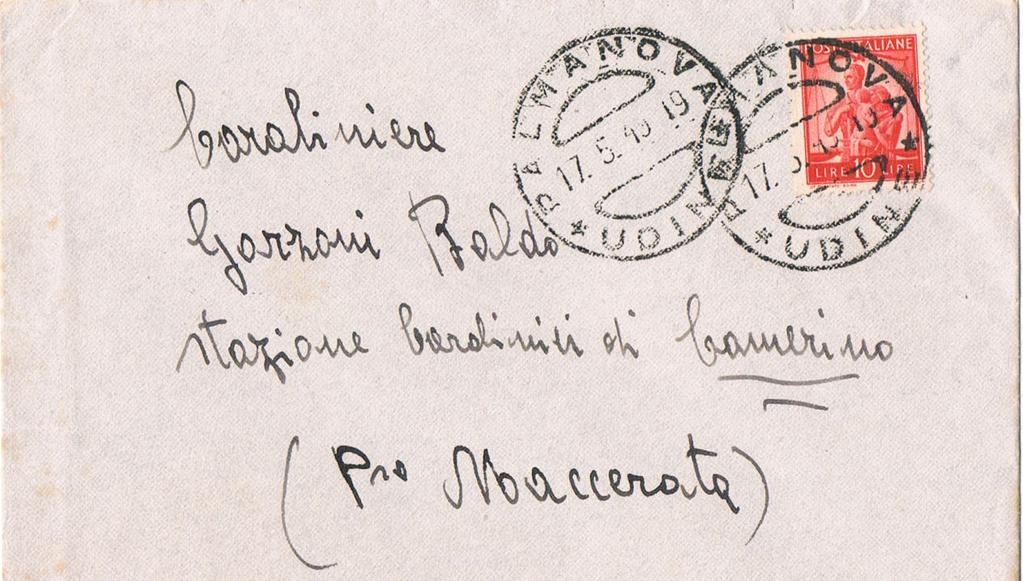 PALMANOVA
17. 5. 19
* UDINE *
PALMANOVA
17. 5. 19
* UDINE *
POSTE ITALIANE
LIRE 10 LIRE
Carabiniere
Gozzoni Baldo
stazione di Camerino
(Pro Maccerata)